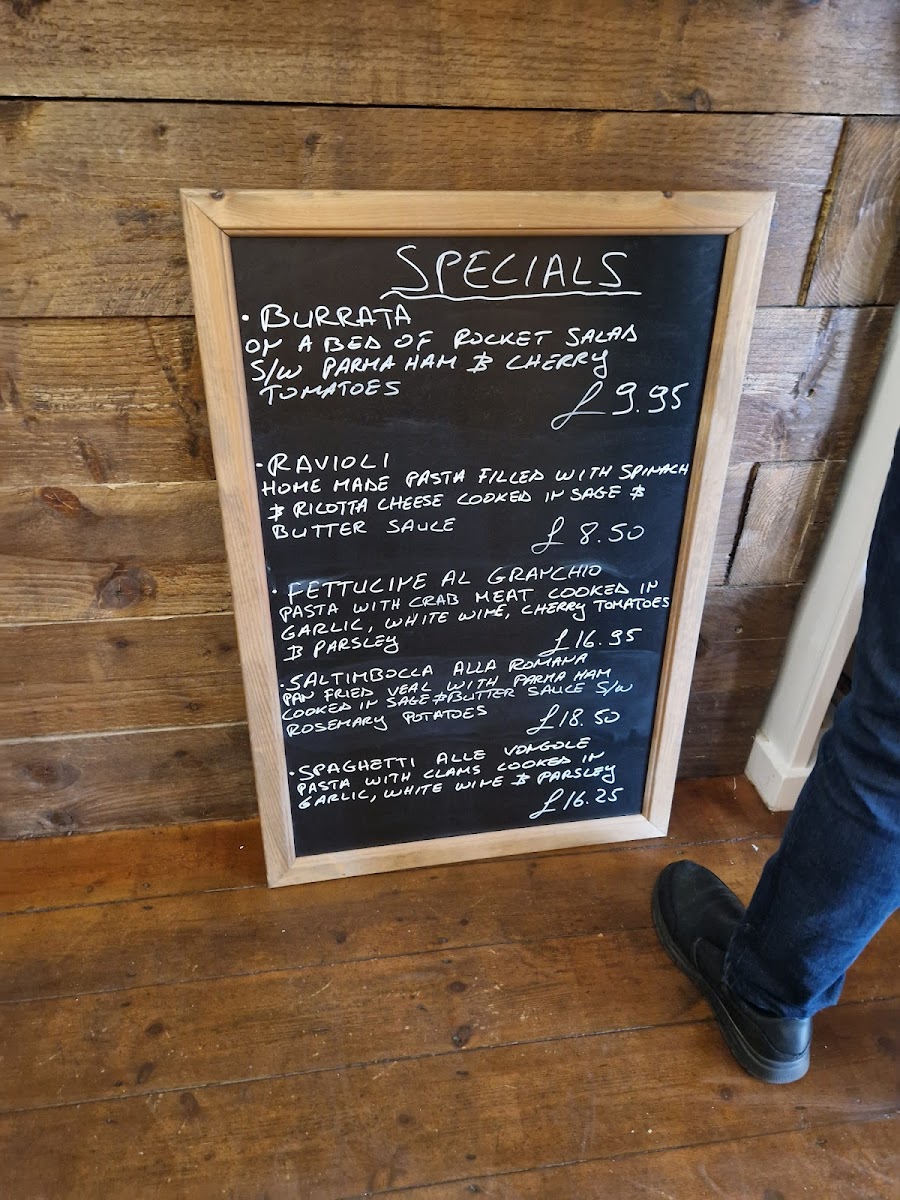 SPECIALS
• BURRATA
ON A BED OF ROCKET SALAD
S/W PARMA HAM & CHERRY
TOMATOES
£9.95
• RAVIOLI
HOME MADE PASTA FILLED WITH SPINACH
& RICOTTA CHEESE COOKED IN SAGE &
BUTTER SAUCE
£8.50
• FETTUCINE AL GRANCHIO
PASTA WITH CRAB MEAT COOKED IN
GARLIC, WHITE WINE, CHERRY TOMATOES
& PARSLEY
£16.95
• SALTIMBOCCA ALLA ROMANA
PAN FRIED VEAL WITH PARMA HAM
COOKED IN SAGE & BUTTER SAUCE S/W
ROSEMARY POTATOES
£18.50
• SPAGHETTI ALLE VONGOLE
PASTA WITH CLAMS COOKED IN
GARLIC, WHITE WINE & PARSLEY
£16.25